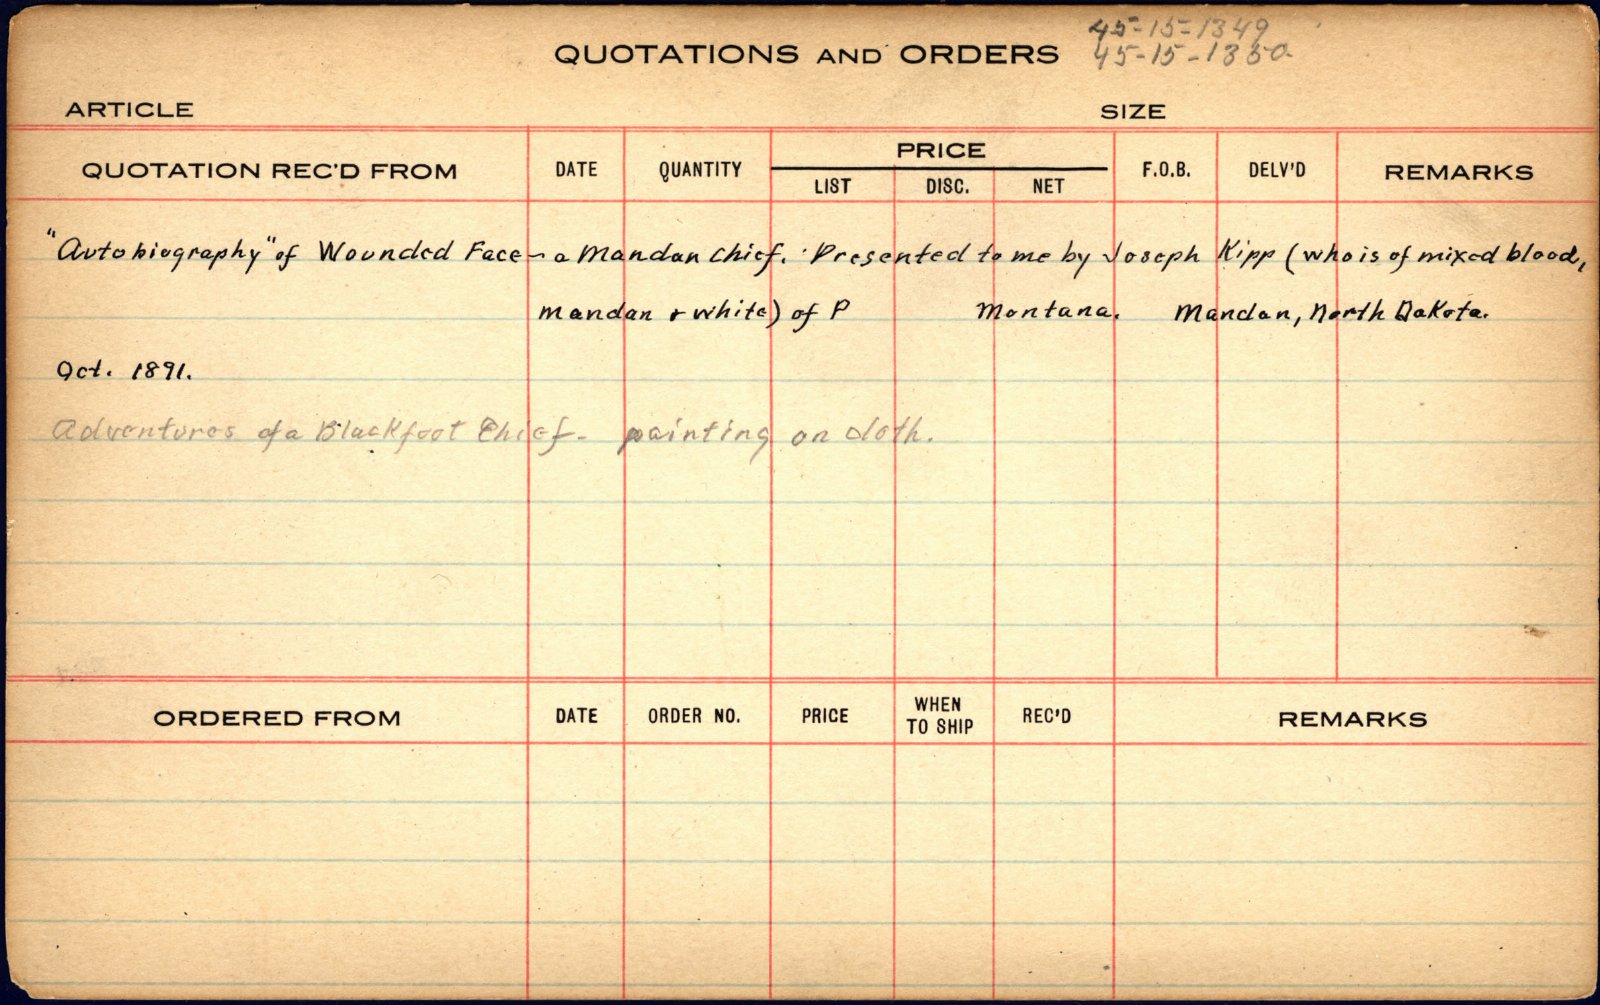 45-15-1349
QUOTATIONS AND ORDERS 45-15-1350
ARTICLE SIZE
QUOTATION REC'D FROM DATE QUANTITY PRICE LIST DISC. NET F.O.B. DELV'D REMARKS
"Autobiography" of Wounded Face - a Mandan Chief. Presented to me by Joseph Kipp (who is of mixed blood,
Mandan & white) of P Montana. Mandan, North Dakota.
Oct. 1891.
Adventures of a Blackfoot Chief - painting on cloth.
ORDERED FROM DATE ORDER NO. PRICE WHEN TO SHIP REC'D REMARKS